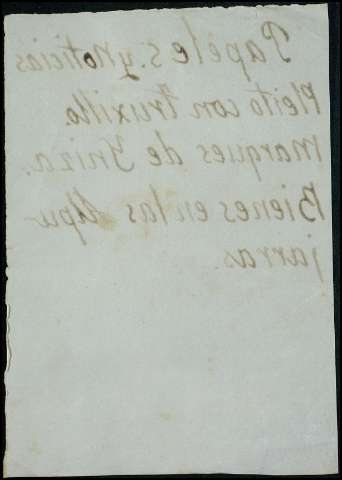 Papeles y Noticias
Pleito con Truxillo
Marques de Yniza.
Bienes en las Alpu
jarras.